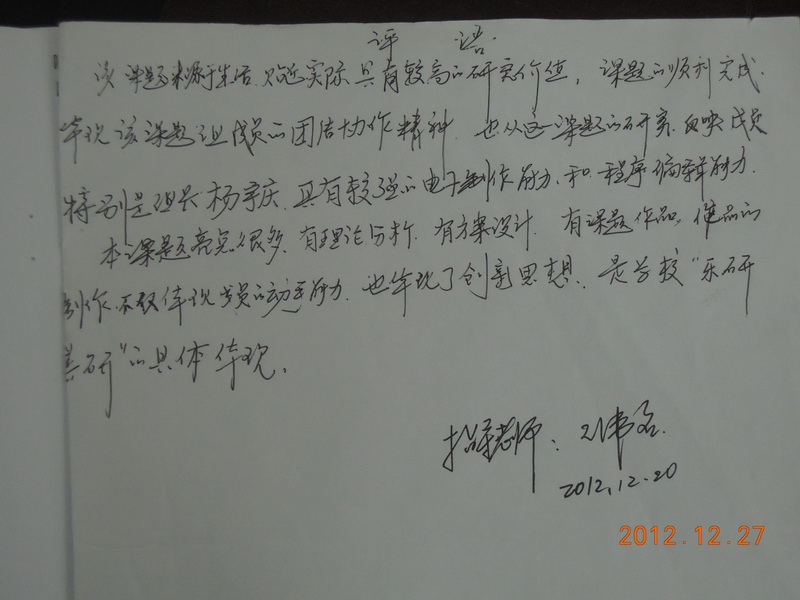 评 语
该课题来源于生活,贴近实际,具有较高的研究价值,课题的顺利完成.
体现该课题组成员的团结协作精神.也从这课题的研究.反映成员
特别是组长杨宇庆.具有较强的电子制作能力.和程序编辑能力.
本课题亮点很多.有理论分析.有方案设计.有课题作品,作品的
制作不仅体现学员的动手能力.也体现了创新思想.是学校“乐研
善研”的具体体现.
指导老师:刘伟
2012.12.20
2012.12.27